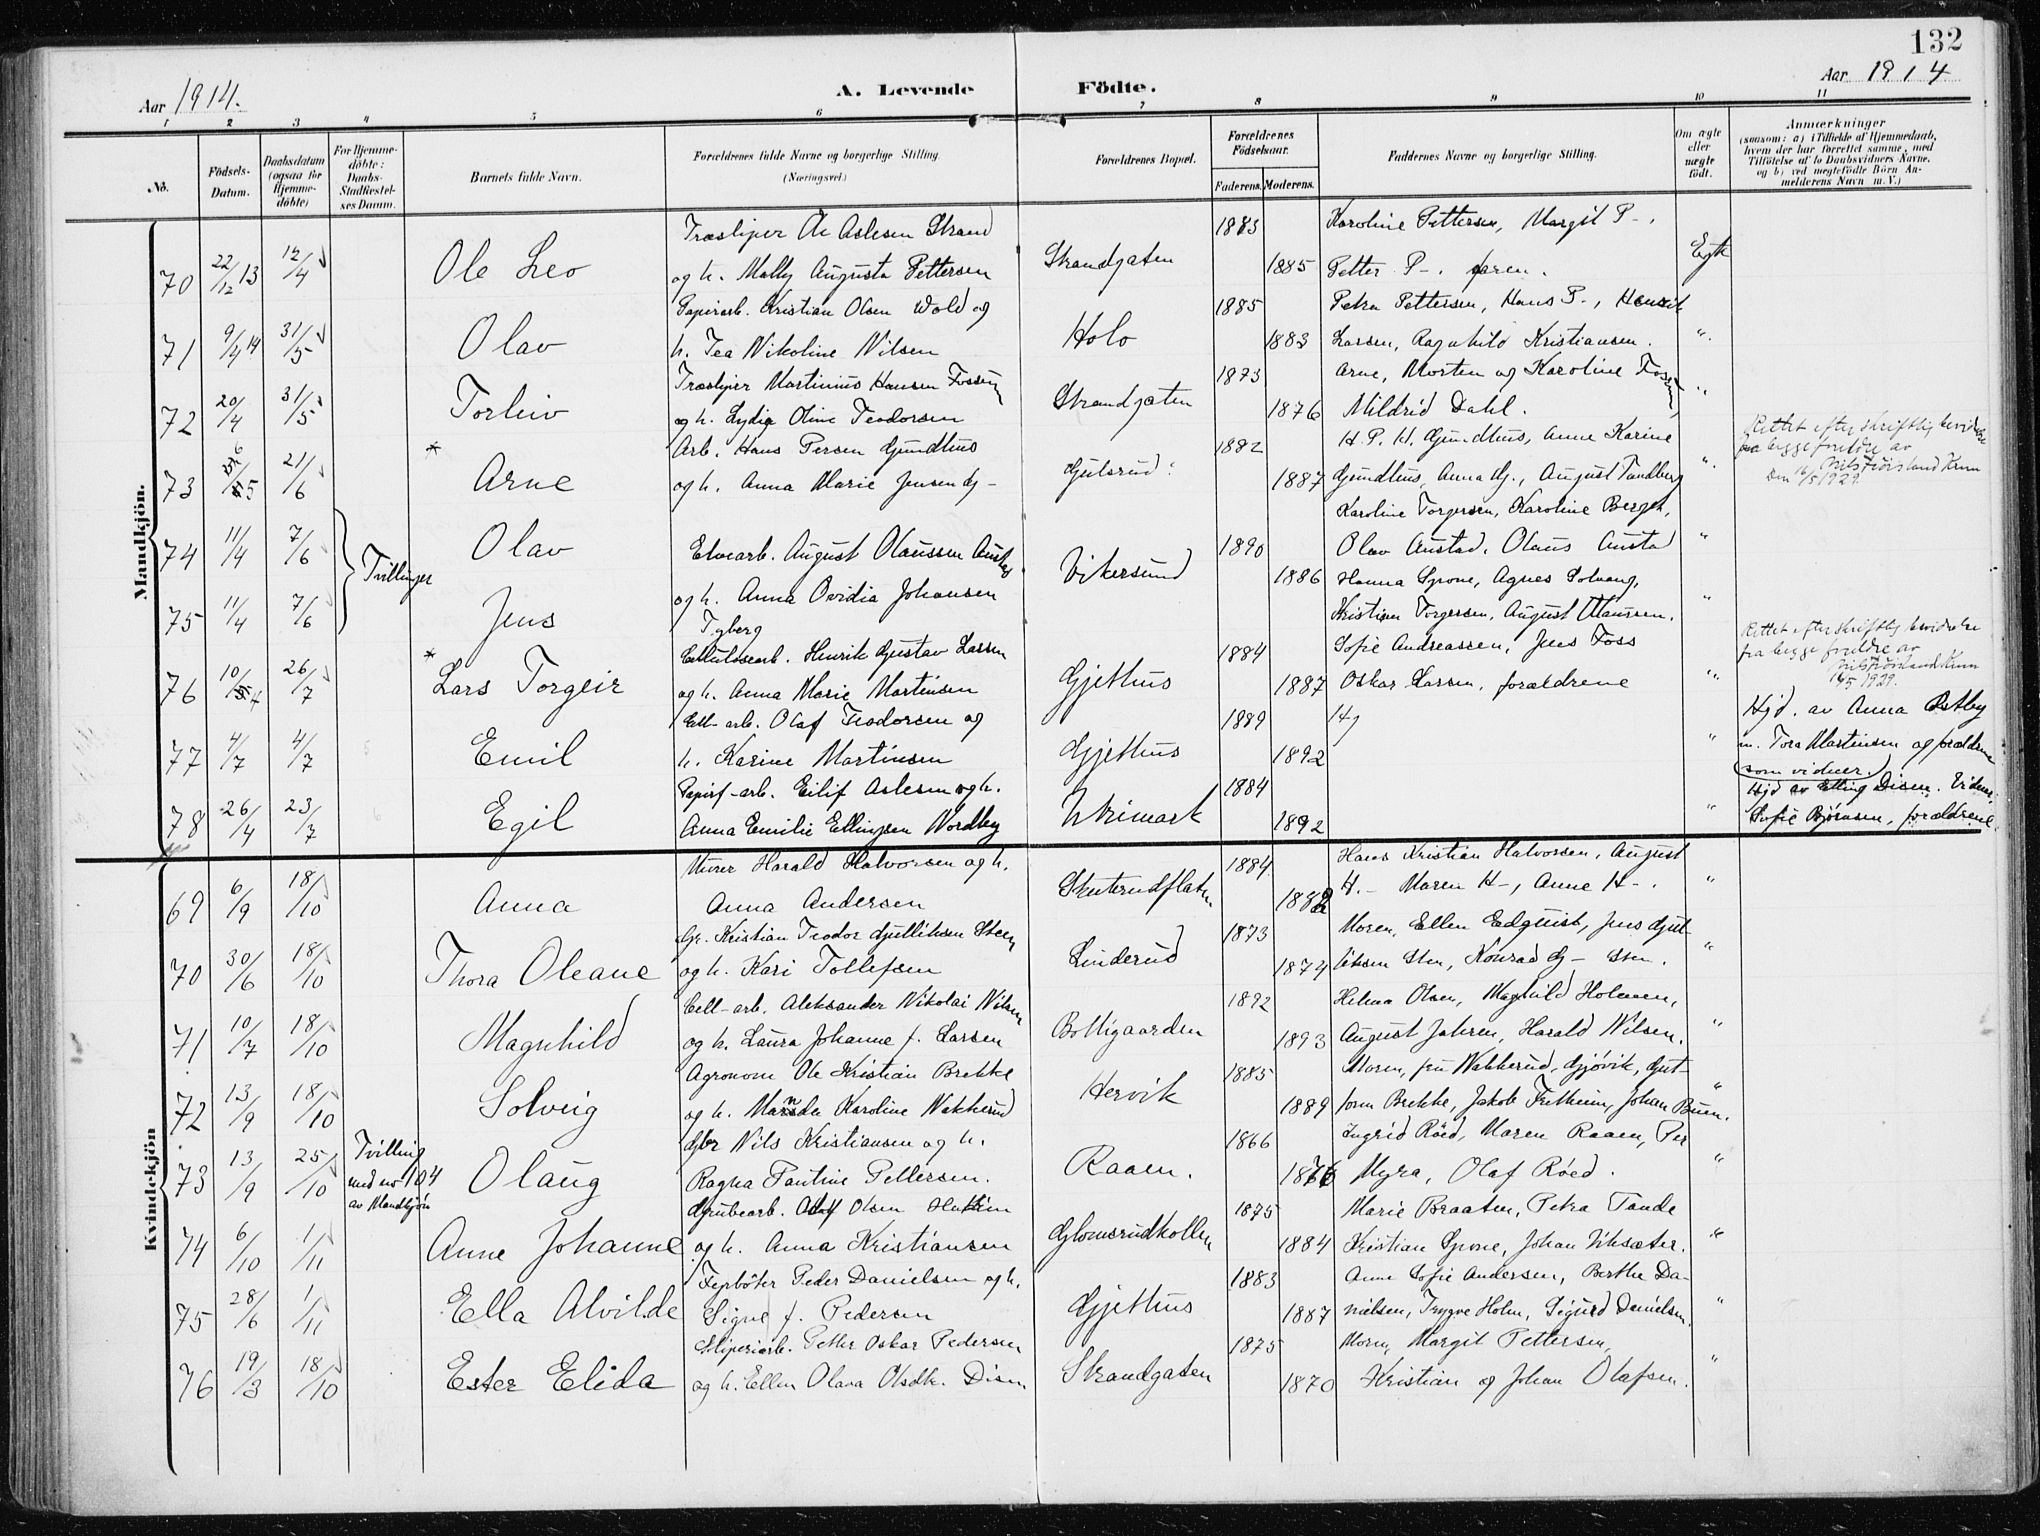 132
Aar 1914.
A. Levende Födte.
Aar 1914
1 2 3 4 5 6 7 8 9 10 11
No.
Födsels-Datum.
Daabsdatum (ogsaa for Hjemme-döbte)
For Hjemme-döbte: Daabs-Stadfæstel-ses Datum.
Barnets fulde Navn.
Forældrenes fulde Navne og borgerlige Stilling. (Næringsvei.)
Forældrenes Bopæl.
Forældrenes Födselsaar.
Faderens. Moderens.
Faddernes Navne og borgerlige Stilling.
Om ægte eller uægte födt.
Anmærkninger
(saasom: a) i Tilfælde af Hjemmedaab, hvem der har forrettet samme, med Tilföielse af to Daabsvidners Navne, og b) ved uægtefödte Börn An-melderens Navn m. V.)
Mandkjön.
Træsliper Ole Aslesen Strand 1883 Karoline Pettersen, Margit P-.
70 22/12 13 12/4 Ole Leo og h. Mally Augusta Pettersen Strandgaten 1885 Petter P-. faren. Egte
Papirarb. Kristian Olsen Wold og 1885 Petra Pettersen, Hans P., Henrik
71 9/4 14 31/5 Olav h. Tea Nikoline Nilsen Holo 1883 Larsen, Ragnhild Kristiansen. "
Træsliper Martinius Hansen Fossum 1873 Arne, Morten og Karoline Fossum,
72 20/4 31/5 Torleiv og h. Lydia Oline Teodorsen Strandgaten 1876 Mildrid Dahl. "
* Arb. Hans Persen Gjundhus 1882 H. P. H. Gjundhus, Anne Karine
Rettet efter skriftlig bevidnelse
fra begge foreldre av
Nils Frøisland Krum
Den 16/5 1929.
73 6/5 21/6 Arne og h. Anna Marie Jensen Gj- Gjulsrud 1887 Gjundhus, Anna Gj., August Tandberg "
Karoline Torgersen, Karoline Berget,
74 11/4 7/6 Olav Elvearb. August Olaussen Austad Vikersund 1890 Olav Austad, Olaus Austad "
Tvillinger
og h. Anna Ovidia Johansen 1886 Hanna Spone, Agnes Solvang,
75 11/4 7/6 Jens Tyberg Kristian Torgersen, August Olaussen. "
* Cellulosearb. Henrik Gustav Larsen 1884 Sofie Andreassen, Jens Foss
Rettet efter skriftlig bevidnelse
fra begge foreldre av
Nils Frøisland Krum
16/5 1929.
76 10/4 26/7 Lars Torgeir og h. Anna Marie Martinsen Gjethus 1887 Oskar Larsen, forældrene "
Cell-arb. Olaf Teodorsen og 1889 Hj Hjd. av Anna Østby
77 4/7 4/7 Emil h. Karine Martinsen Gjethus 1892 " m. Tora Martinsen og forældrene
som vidner.
Papirf-arb. Eilif Aslesen og h. 1884 Hjd av Elling Disen. Vidner,
78 26/4 23/7 Egil Anna Emilie Ellingsen Nordby 1892 " Sofie Bjørnsen, forældrene.
Kvindekjön
Murer Harald Halvorsen og h. 1884 Hans Kristian Halvorsen, August
69 6/9 18/10 Anna Anna Andersen Skuterudflaten H.- Maren H-, Anne H-. "
Gr. Kristian Teodor Gulliksen Steen 1873 Moren, Ellen Edquist, Jens Gul-
70 30/6 18/10 Thora Oleane og h. Kari Tollefsen Linderud 1874 liksen Sten, Konrad G- Sten. "
Cell-arb. Aleksander Nikolai Nilsen 1892 Helma Olsen, Magnhild Holmen,
71 10/7 18/10 Magnhild og h. Laura Johanne f. Larsen Bolliggaarden 1893 August Jahren, Harald Nilsen. "
Agronom Ole Kristian Brekke 1885 Moren, fru Nakkerud, Gjøvik, Gut-
72 13/9 18/10 Solveig og h. Karoline Nakkerud Hervik 1889 torm Brekke, Jakob Fretheim, Johan Buen. "
Gbr Nils Kristiansen og h. 1866 Ingrid Røed, Maren Raaen, Per
73 13/9 25/10 Tvilling med no 104 av Mandkjøn Olaug Ragna Pauline Pettersen. Raaen. 1876 Myra, Olaf Røed. "
Grubearb. Olaf Olsen 1875 Marie Braaten, Petra Tande
74 6/10 1/11 Anne Johanne og h. Anna Kristiansen Glomsrudkollen 1884 Kristian Spone, Johan Viksæter. "
Fyrbøter Peder Danielsen og h. 1883 Anne Sofie Andersen, Berthe Da-
75 28/6 1/11 Ella Alvilde Signe f. Pedersen Gjethus 1887 nielsen, Trygve Holm, Sigurd Danielsen. "
Sliperiarb. Petter Oskar Pedersen 1875 Moren, Margit Pettersen,
76 19/3 18/10 Ester Elida og h. Ellen Olava Olsdtr. Disen Strandgaten 1870 Kristian og Johan Olafsen. "